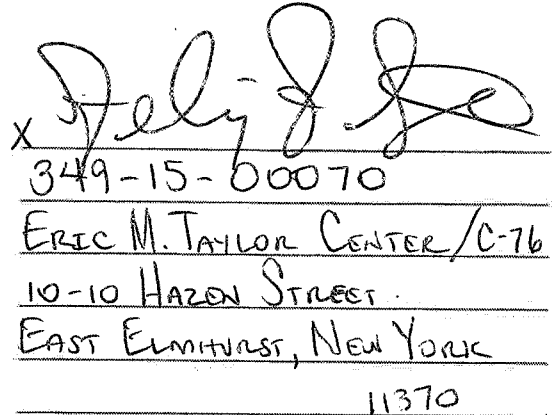 X
349-15-00070
ERIC M. TAYLOR CENTER/C-76
10-10 HAZEN STREET.
EAST ELMHURST, NEW YORK
11370